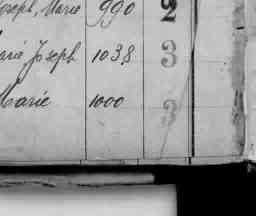 Joseph, Marie 990 2
Marie Joseph 1038 3
Marie 1000 3